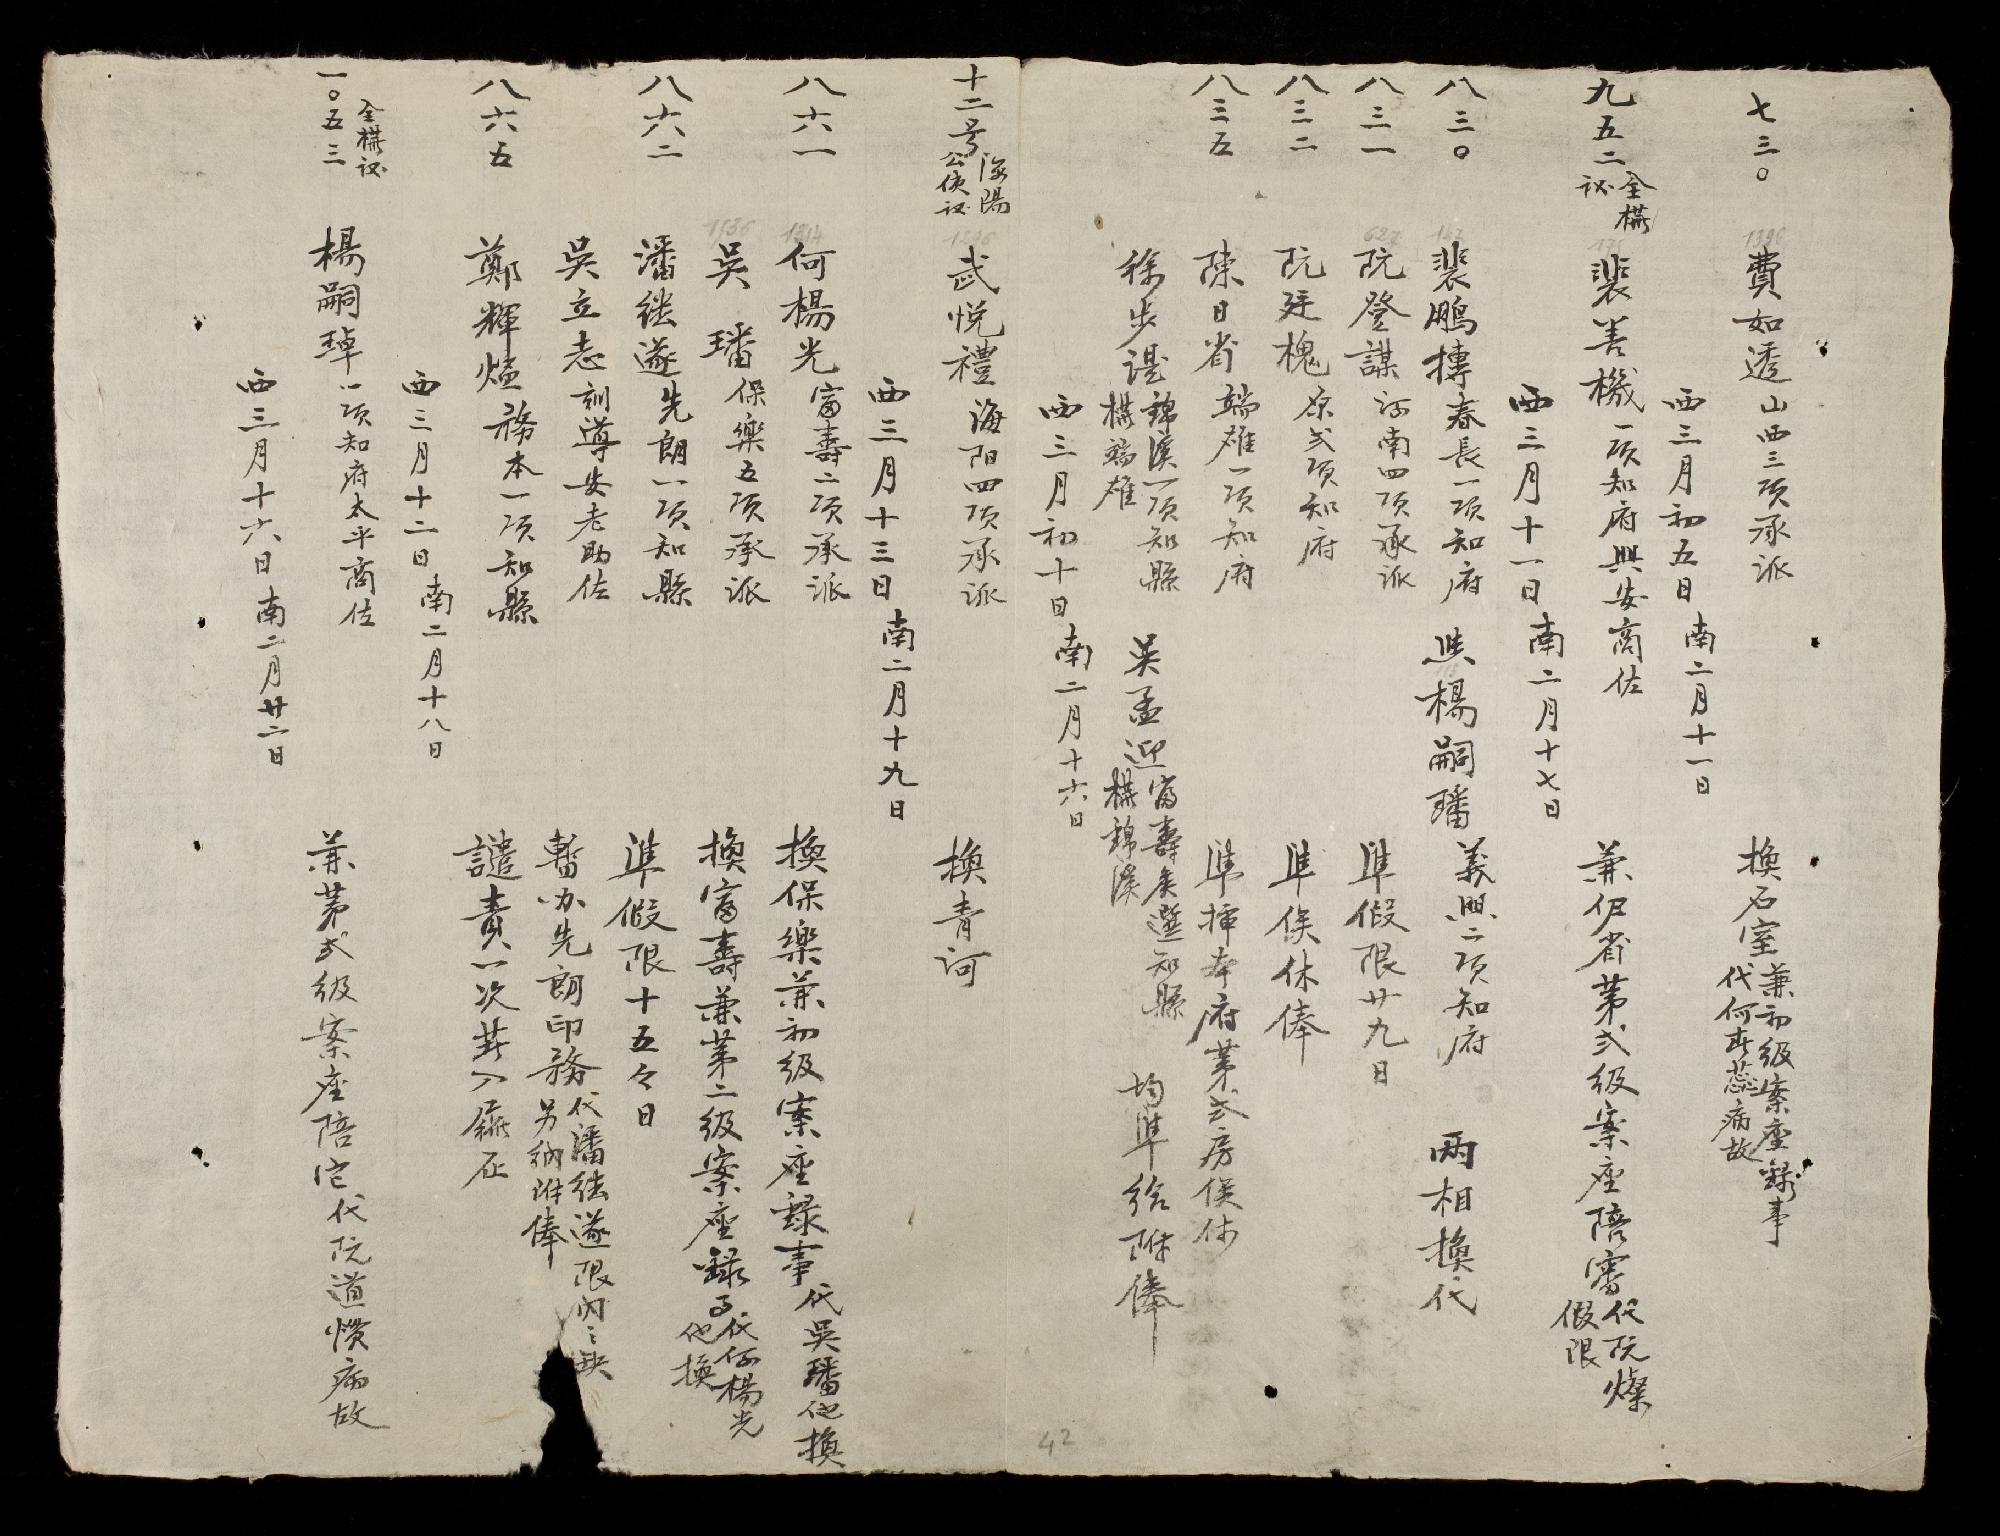 七三〇 1390 費如透 山西三項承派 換石室 兼初級案座錄事
代何 蕊病故
西三月初五日 南二月十一日
九五二 全權祕 裴善機 一項知府興安商佐 兼仍省第弍級案座陪審 代阮燦
假限
西三月十一日 南二月十七日
八三〇 裴鵬摶 春長一項知府 楊嗣璠 義興二項知府 两相換代
八三一 627 阮登謀 河南四項承派 準假限廿九日
八三二 阮廷槐 原弍項知府 準俟休俸
八三五 陳日省 端雄一項知府 準 本府第弍房俟休
徐步諶 錦溪一項知縣
權端雄 吳孟迎 富壽矣選知縣
權錦溪 均準給附俸
西三月初十日 南二月十六日
十二号 海陽
公使祕 武悦禮 海阳四項承派 換青河
西三月十三日 南二月十九日
八六一 何楊光 富壽二項承派 換保樂兼初級案座錄事 代吳璠他換
吳璠 保樂五項承派 換富壽兼第二級案座錄事 代何楊光
他換
八六二 潘継遂 先朗一項知縣 準假限十五々日
吳立志 訓導安老助佐 暫办先朗印務 代潘継遂限內之缺
另納附俸
八六五 鄭輝煊 務本一項知縣 譴責一次 入
西三月十二日 南二月十八日
全權祕
一〇五三 楊嗣琸 一項知府太平商佐 兼第弍級案座陪审代阮道慣病故
西三月十六日 南二月廿二日
42